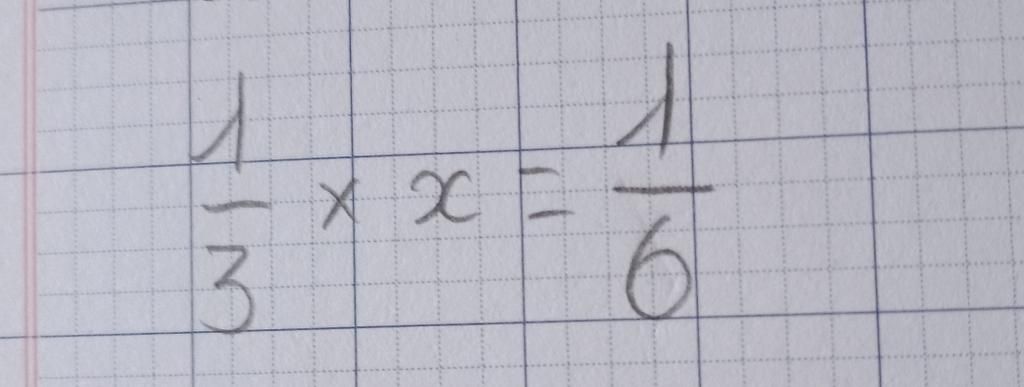 1/3 × x = 1/6